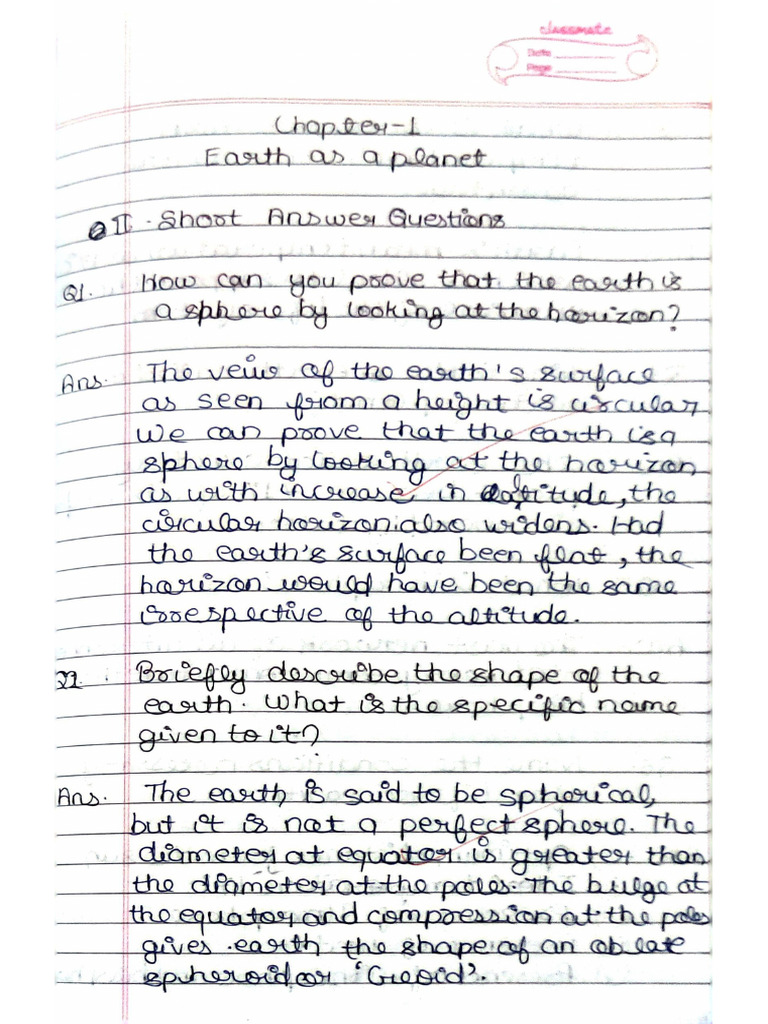 classmate
Date
Page
Chapter-1
Earth as a planet
II. Short Answer Questions
Q1. How can you prove that the earth is
a sphere by looking at the horizon?
Ans. The veiw of the earth's surface
as seen from a height is circular
We can prove that the earth is a
sphere by looking at the horizon
as with increase in altitude, the
circular horizon also widens. Had
the earth's surface been flat, the
horizon would have been the same
irrespective of the altitude.
Briefly describe the shape of the
earth. What is the specific name
given to it?
Ans. The earth is said to be spherical,
but it is not a perfect sphere. The
diameter at equator is greater than
the diameter at the poles. The bulge at
the equator and compression at the poles
gives earth the shape of an oblate
spheroid or 'Geoid'.